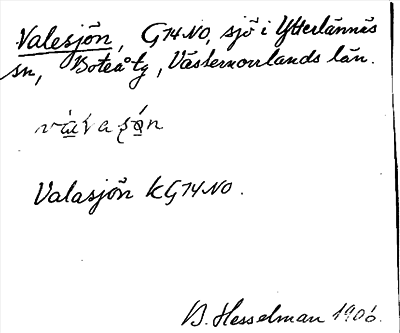 Valesjön, G74NO, sjö i Ytterlännäs
sn, Boteå tg, Västernorrlands län.
Valasjön KG74NO.
B. Hesselman 1906.